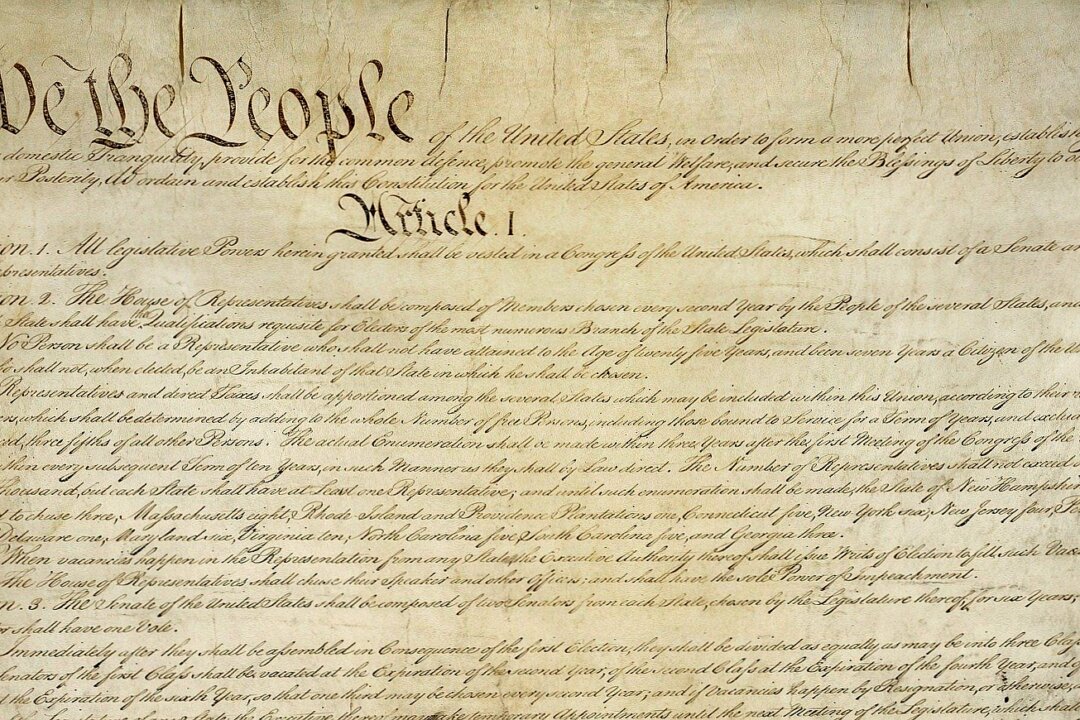 We the People of the United States, in Order to form a more perfect Union, establish
domestic Tranquility, provide for the common defence, promote the general Welfare, and secure the Blessings of Liberty to ou
r Posterity, do ordain and establish this Constitution for the United States of America.
Article. I.
ion. 1. All legislative Powers herein granted shall be vested in a Congress of the United States, which shall consist of a Senate an
epresentatives.
ion. 2. The House of Representatives shall be composed of Members chosen every second Year by the People of the several States, and
State shall have the Qualifications requisite for Electors of the most numerous Branch of the State Legislature.
No Person shall be a Representative who shall not have attained to the Age of twenty five Years, and been seven Years a Citizen of the Un
ho shall not, when elected, be an Inhabitant of that State in which he shall be chosen.
Representatives and direct Taxes shall be apportioned among the several States which may be included within this Union, according to their
ers, which shall be determined by adding to the whole Number of free Persons, including those bound to Service for a Term of Years, and exclud
ed, three fifths of all other Persons. The actual Enumeration shall be made within three Years after the first Meeting of the Congress of the
thin every subsequent Term of ten Years, in such Manner as they shall by Law direct. The Number of Representatives shall not exceed
housand, but each State shall have at Least one Representative; and until such enumeration shall be made, the State of New Hampshire
d to chuse three, Massachusetts eight, Rhode Island and Providence Plantations one, Connecticut five, New York six, New Jersey four,
Delaware one, Maryland six, Virginia ten, North Carolina five, South Carolina five, and Georgia three.
When vacancies happen in the Representation from any State, the Executive Authority thereof shall issue Writs of Election to fill such Vaca
The House of Representatives shall chuse their Speaker and other Officers; and shall have the sole Power of Impeachment.
n. 3. The Senate of the United States shall be composed of two Senators from each State, chosen by the Legislature thereof, for six Years;
or shall have one Vote.
Immediately after they shall be assembled in Consequence of the first Election, they shall be divided as equally as may be into three Clas
enators of the first Class shall be vacated at the Expiration of the second Year, of the second Class at the Expiration of the fourth Year, and of
the Expiration of the sixth Year, so that one third may be chosen every second Year; and if Vacancies happen by Resignation, or otherwise, d
Legislature of any State, the Executive thereof may make temporary Appointments until the next Meeting of the Legislature, which shall